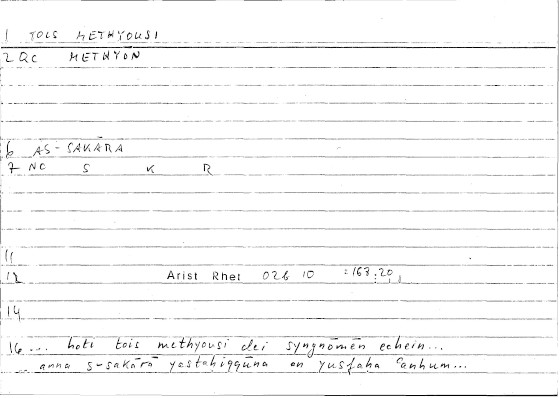 1 TOIS METHYOUSI
2 QC METHYŌN
6 AS-SAKĀRA
7 NC S K R
11
12 Arist Rhet 026 10 =163,20,
14
16 ... hoti tois methyousi dei syngnōmēn echein...
... anna s-sakārā yastaḥiqqūna an yuṣfaḥa ʿanhum...